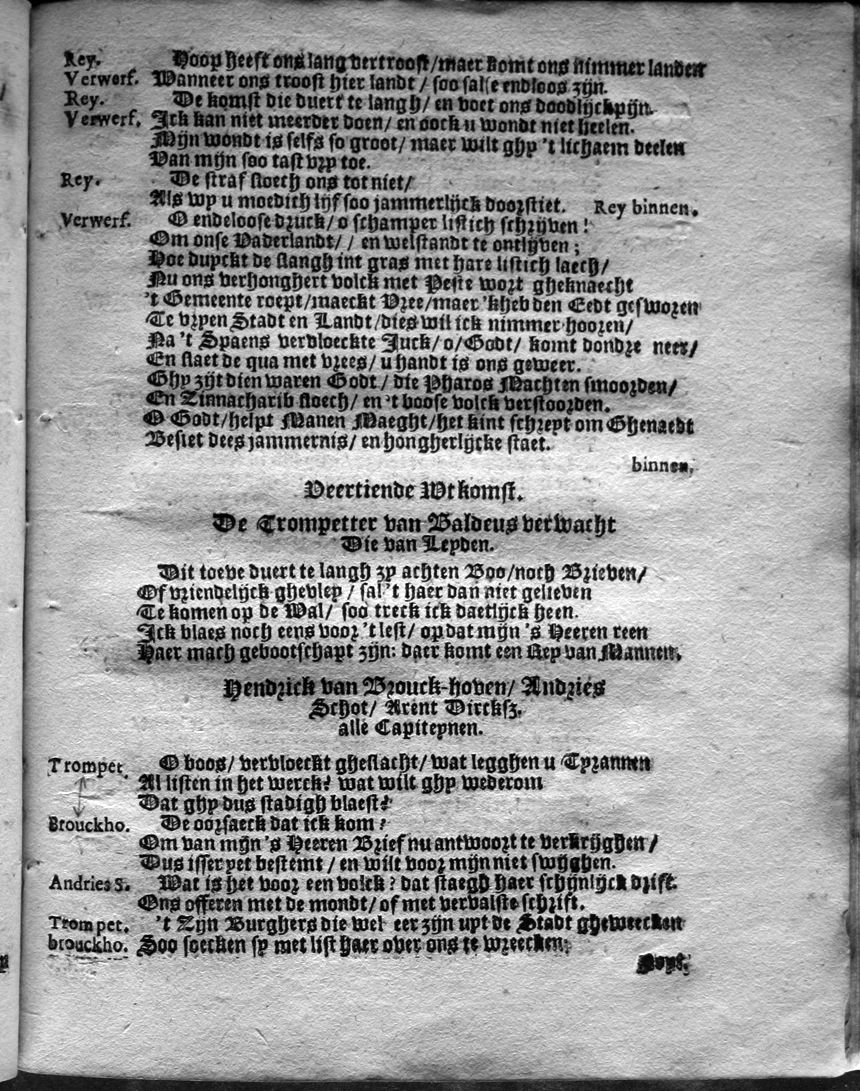 Rey. Hoop heeft ons lang vertroost/maer komt ons nimmer landen
Verwerf. Wanneer ons troost hier landt / soo salse endloos zijn.
Rey. De komst die duert te langh/ en voet ons doodlijck pijn.
Verwerf. Ick kan niet meerder doen/ en oock u wondt niet heelen.
Mijn wondt is selfs so groot/ maer wilt ghy 't lichaem deelen
Van mijn soo tast vry toe.
Rey. De straf sloech ons tot niet/
Als wy u moedich lijf soo jammerlijck doorstiet. Rey binnen.
Verwerf. O endeloose druck/ o schamper listich schrijven!
Om onse Vaderlandt/ / en welstandt te ontlijven;
Hoe duyckt de slangh int gras met hare listich laech/
Nu ons verhonghert volck met Peste wort gheknaecht
't Gemeente roept/maeckt Vree/maer 'kheb den Eedt gesworen
Te vryen Stadt en Landt/dies wil ick nimmer hooren/
Na 't Spaens verdloeckte Juck/o/Godt/ komt dondre neer/
En slaet de qua met vrees/ u handt is ons geweer.
Ghy zijt dien waren Godt/ die Pharos Machten smoorden/
En Zinnacharib sloech/ en 't boose volck verstoorden.
O Godt/helpt Manen Maeght/het kint schreyt om Ghenaedt
Besiet dees jammernis/ en hongherlijcke staet.
binnen.
Veertiende Wtkomst.
De Trompetter van Baldeus verwacht
Die van Leyden.
Dit toeve duert te langh zy achten Boo/noch Brieven/
Of vriendelijck ghevley / sal 't haer dan niet gelieven
Te komen op de Wal/ soo treck ick daetlijck heen.
Ick blaes noch eens voor 't lest/ op dat mijn 's Heeren reen
Haer mach gebootschapt zijn: daer komt een Rey van Mannen.
Hendrick van Brouck-hoven/ Andries
Schot/ Arent Dircksz.
alle Capiteynen.
Trompet. O boos/ vervloeckt gheslacht/ wat legghen u Tyrannen
Al listen in het werck? wat wilt ghy wederom
Dat ghy dus stadigh blaest?
Brouckho. De oorsaeck dat ick kom?
Om van mijn 's Heeren Brief nu antwoort te verkrijghen/
Dus isser yet bestemt / en wilt voor mijn niet swijghen.
Andries S. Wat is het voor een volck? dat staegh haer schijnlijck drift.
Ons offeren met de mondt/ of met vervalste schrift.
Trompet. 't Zijn Burghers die wel eer zijn uyt de Stadt gheweecken
brouckho. Soo soecken sy met list haer over ons te wreecken;